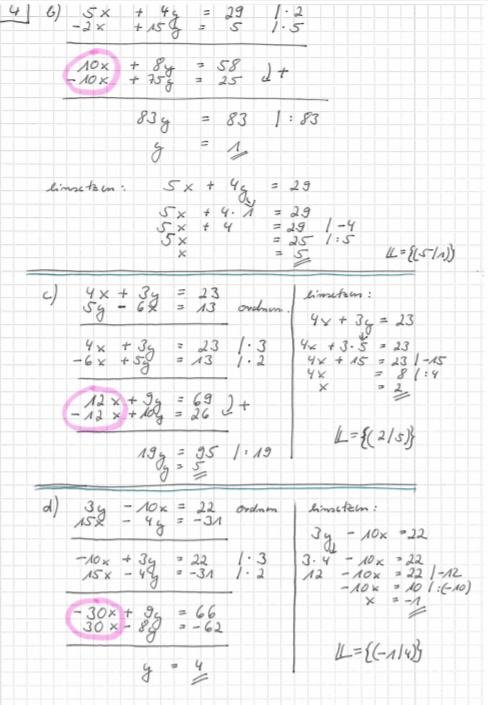 4 b) 5x + 4y = 29 | · 2
-2x + 15y = 5 | · 5
10x + 8y = 58
-10x + 75y = 25 +
83y = 83 | : 83
y = 1
Einsetzen: 5x + 4y = 29
5x + 4 · 1 = 29
5x + 4 = 29 | -4
5x = 25 | : 5
x = 5
L = {(5/1)}
c) 4x + 3y = 23
5y - 6x = 13 ordnen
4x + 3y = 23 | · 3
-6x + 5y = 13 | · 2
12x + 9y = 69
-12x + 10y = 26 +
19y = 95 | : 19
y = 5
Einsetzen:
4x + 3y = 23
4x + 3 · 5 = 23
4x + 15 = 23 | -15
4x = 8 | : 4
x = 2
L = {(2/5)}
d) 3y - 10x = 22 ordnen
15x - 4y = -31
-10x + 3y = 22 | · 3
15x - 4y = -31 | · 2
-30x + 9y = 66
30x - 8y = -62
y = 4
Einsetzen:
3y - 10x = 22
3 · 4 - 10x = 22
12 - 10x = 22 | -12
-10x = 10 | : (-10)
x = -1
L = {(-1/4)}